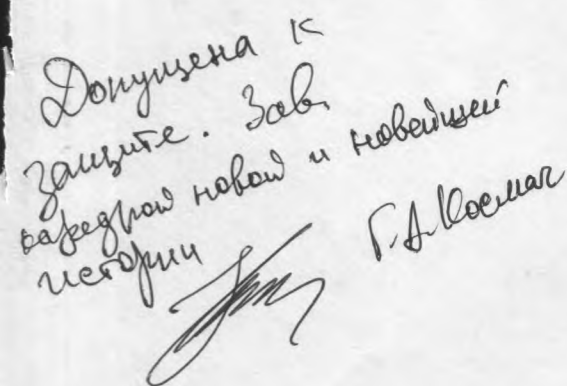 Допущена к
защите. Зав.
кафедрой новой и новейшей
истории
Г.А. Космач